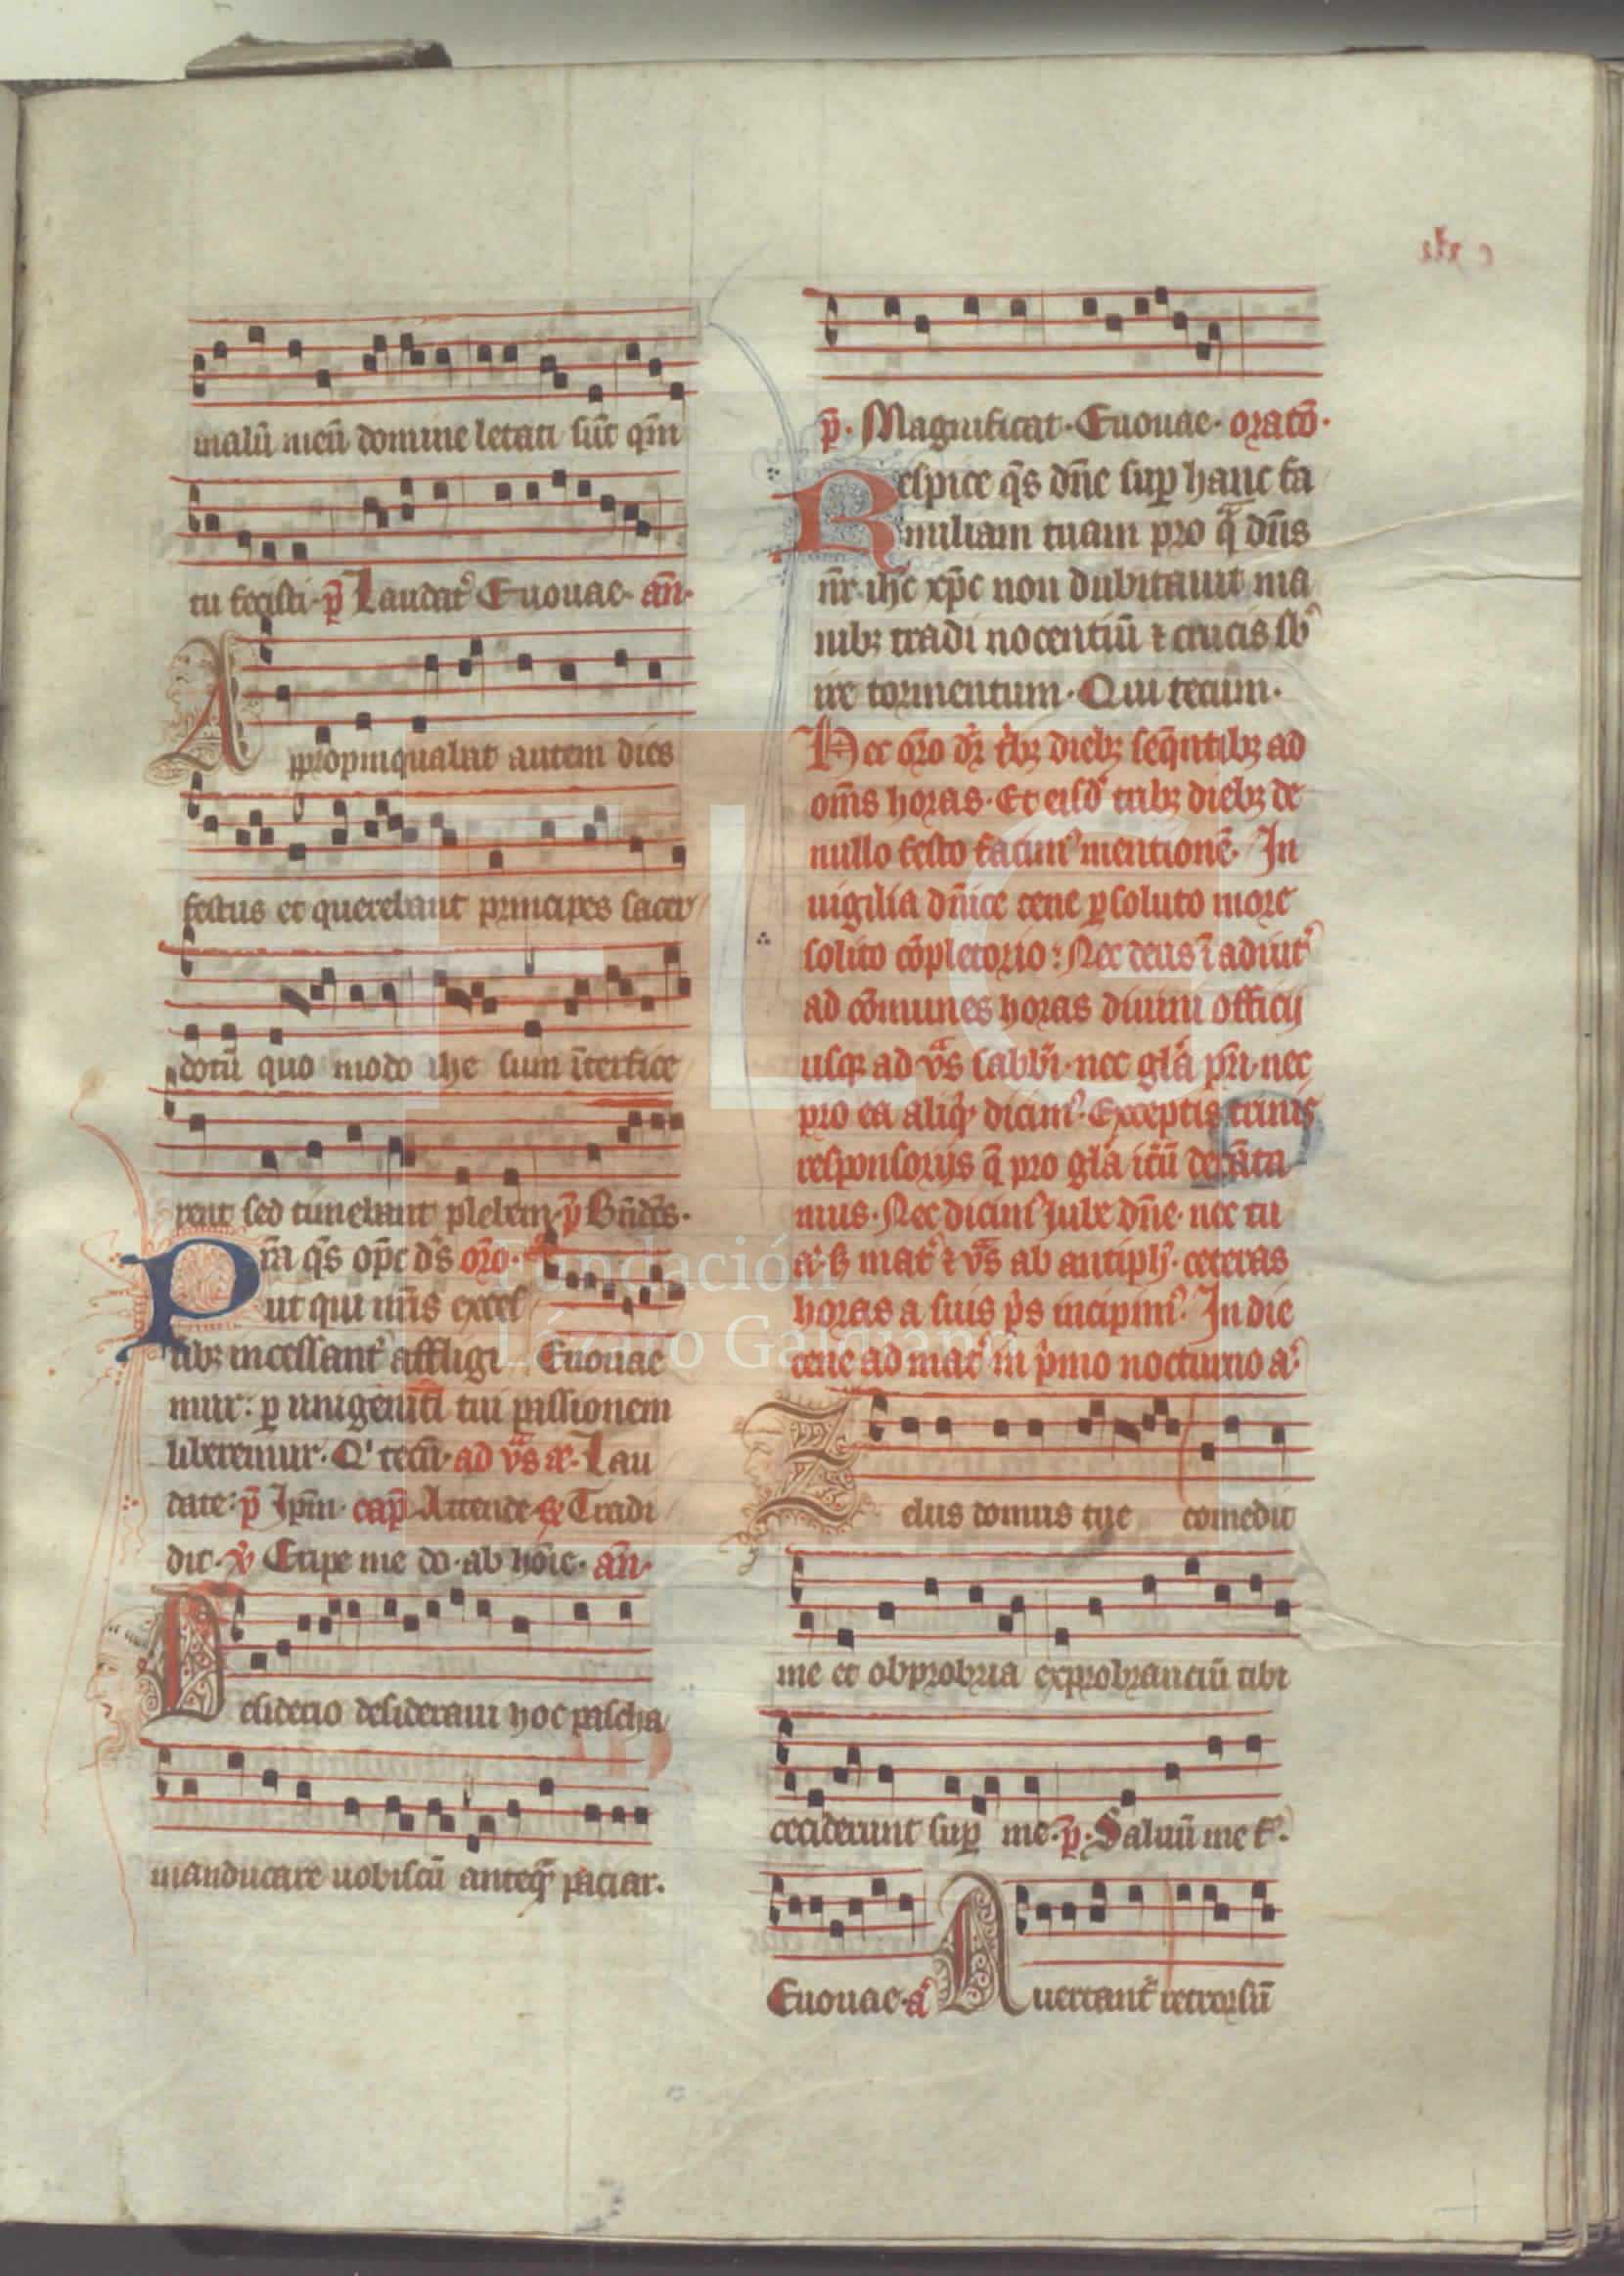 malū meū domine letati sūt qm̄
tu fecisti. p̄ Laudat᷑ Euouae. an̄.
Appropinquabat autem dies
festus et querebant principes sacer
dotū quo modo ihc sum īterfice
rent sed timebant plebem. p̄ Bn̄dc̄s.
Pr̄a qs̄ opc̄ ds̄ or̄o.
ut qui nr̄is exces
sibꝫ incessant᷑ affligi Euouae
mur: ꝑ unigeniti tui passionem
liberemur. Q' tecū. ad vs̄ ꝶ. Lau
date: p̄ Ip̄m cap̄ Attende ꝶ Tradi
dit. ℣ Eripe me do. ab hōie. an̄.
Desiderio desideraui hoc pascha
manducare uobiscū anteq̄ paciar.
c xlx
p̄. Magnificat. Euouae. oratō.
Respice qs̄ dn̄e suꝑ hanc fa
miliam tuam pro q̄ dn̄s
nr̄ ihc xp̄c non dubitauit ma
nibꝫ tradi nocentiū ⁊ crucis sb
ire tormentum. Qui tecum.
Hec or̄o dr̄ t'bꝫ diebꝫ seq̄ntibꝫ ad
om̄s horas. Et eisd' tribꝫ diebꝫ de
nullo festo facim' mentionē. In
uigilia dn̄ice cene ꝑsoluto more
solito cōpletorio: Nec deus ī adiut᷑
ad cōmunes horas diuini officij
usꝗ ad vs̄ sabbi. nec gl'a pri. nec
pro ea aliq' dicim'. Exceptis trinis
responsorijs q̄ pro gl'a itū decāta
mus. Nec dicim' Jube dn̄e. nec tu
a'. s mat' ⁊ vs̄ ab antiph'. ceteras
horas a suis p̄s incipim'. In die
cene ad mat' in p'mo nocturno a'.
Zelus domus tue comedit
me et obprobria exprobranciū tibi
ceciderunt suꝑ me. p̄. Saluū me f'.
Euouae. a' Auertant᷑ retrorsū
Fundación
Lázaro Galdiano